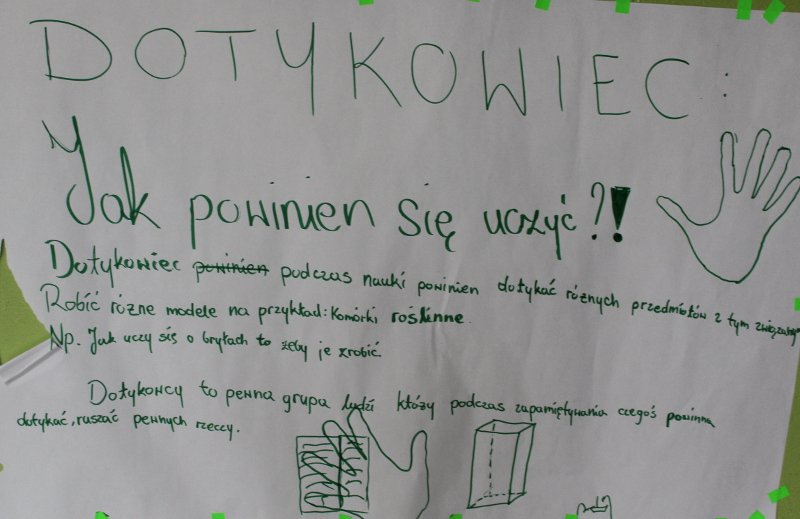 DOTYKOWIEC:
Jak powinien się uczyć?!
Dotykowiec powinien podczas nauki powinien dotykać różnych przedmiotów z tym związanych
Robić różne modele na przykład: Komórki roślinne.
Np. Jak uczy sis o bryłach to żeby je zrobić.
Dotykowcy to pewna grupa ludzi któży podczas zapamiętywania czegoś powinna
dotykać, ruszać pewnych rzeczy.